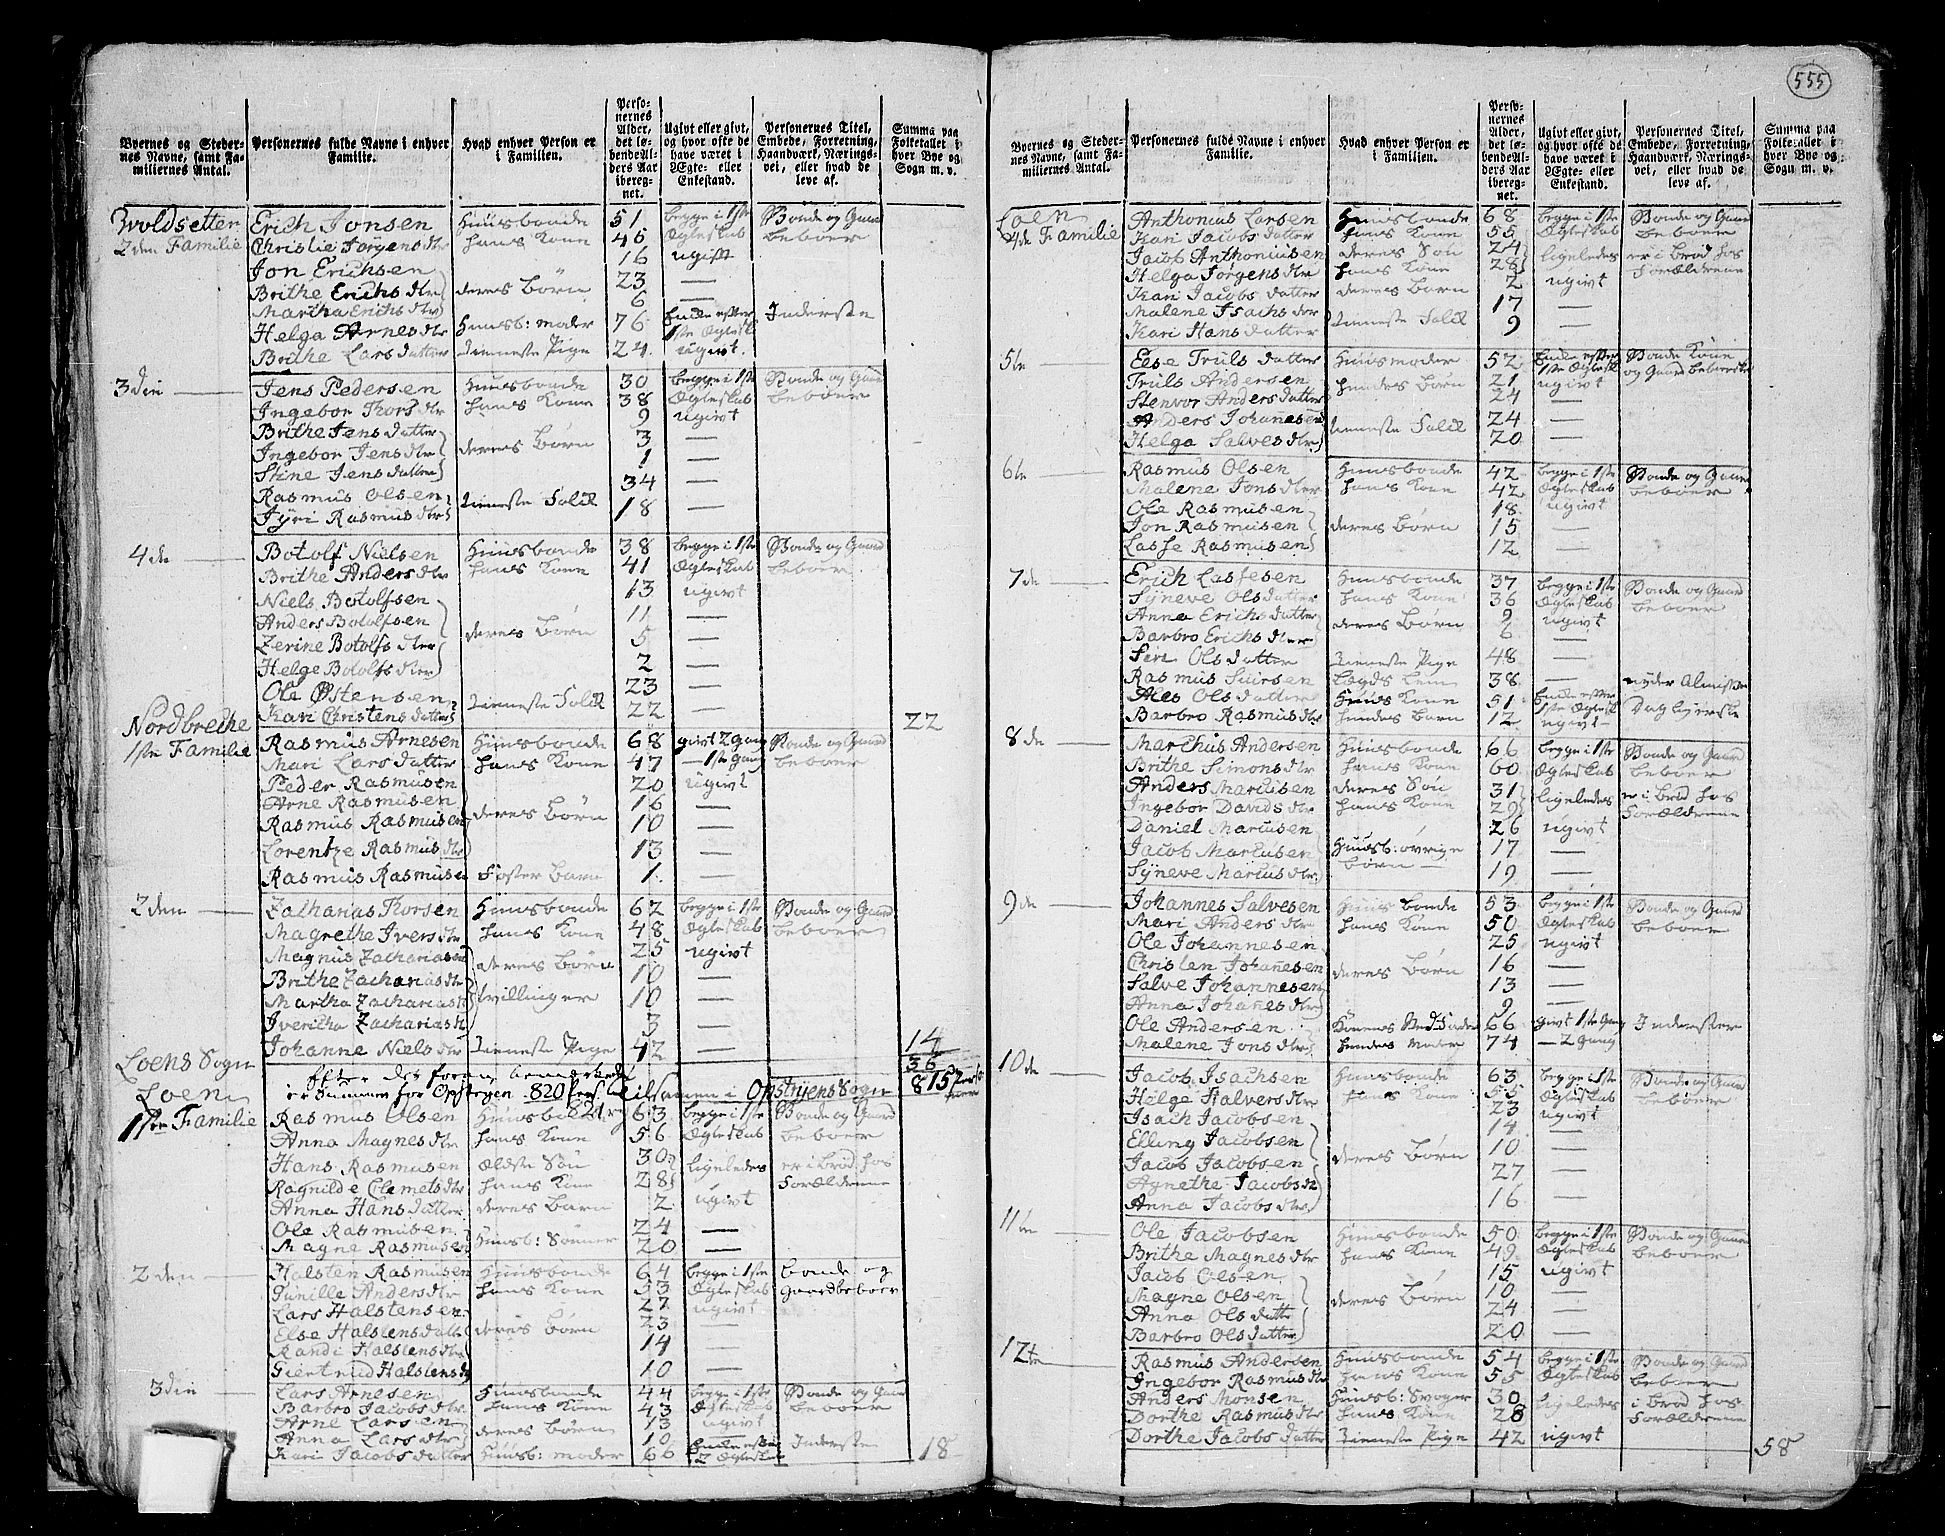 555
Byernes og Steder-
nes Navne, samt Fa-
miliernes Antal.
Personernes fulde Navne i enhver
Familie.
Hvad enhver Person er
i Familien.
Perso-
nernes
Alder,
det lø-
bende Al-
ders Aar
ibereg-
net.
Ugivt eller givt,
og hvor ofte de
have været i
Ægte- eller
Enkestand.
Personernes Titel,
Embede, Forretning,
Haandværk, Nærings-
vei, eller hvad de
leve af.
Summa paa
Folketallet i
hver Bye og
Sogn m. v.
2den Familie Erich Jonsen Huusbonde 51 begge i 1ste Bonde og Gaard
Christie Jørgens dtr hans Kone 46 Ægteskab beboer
Jon Erichsen 16 ugift
Brithe Erichs dtr deres Børn 23 —
Martha Erichs dtr 6 —
Helga Arnes dtr Huusb: moder 76 Enke efter 1ste Ægtesk Inderste
Brithe Lars datter tieneste Pige 24 ugivt.
3die — Jens Pedersen Huusbonde 30 begge i 1ste Bonde og Gaard
Ingebor Thors dtr hans Kone 38 Ægteskab beboer
Brithe Jens datter 9 ugivt
Ingebor Jens dtr deres Børn 3 —
Stine Jens datter 1 —
Rasmus Olsen 34 —
Jyri Rasmus dtr tieneste Folck 18 —
4de — Botolf Nielsen Huusbonde 38 begge i 1ste Bonde og Gaard
Brithe Anders dtr hans Kone 41 Ægteskab beboer
Niels Botolfsen 13 ugivt
Anders Botolfsen 11 —
Zerine Botolfs dtr deres Børn 5 —
Helge Botolfs dtr 2 —
Ole Østensen 23 —
Kari Christens datter tieneste Folck 22 — 22
Nordbrethe
1ste Familie Rasmus Arnesen Huusbonde 68 givt 2 gang Bonde og Gaard
Mari Lars datter hans Kone 47 — 1ste gang beboer
Peder Rasmusen 20 ugivt
Arne Rasmusen 16 —
Rasmus Rasmusen deres Børn 10 —
Lorentze Rasmus dtr 13 —
Rasmus Rasmusen Foster Barn 1 —
2den — Zacharias Thorsen Huusbonde 62 begge i 1ste Bonde og Gaard
Magrethe Ivers dtr hans Kone 48 Ægteskab beboer
Magnus Zachariasen 25 ugivt
Brithe Zacharias dtr deres Børn 10 —
Martha Zacharias dtr tvillinger 10 —
Ivericha Zacharias dtr 3 —
Johanne Niels dtr tieneste Pige 42 — 14
36
Loens Sogn
Loen
i Opstryens Sogn 815
1ste Familie Rasmus Olsen Huusbonde 63 begge i 1ste Bonde og Gaard
Anna Magnes dtr hans Kone 56 Ægteskab beboer
Hans Rasmusen ældste Søn 30 ligeledes er i brød hos
Ragnilde Clemets dtr hans Kone 28 Forældrene
Anna Hans datter deres Barn 2 ugivt
Ole Rasmusen 24 —
Magne Rasmusen Huusb: Sønner 20 —
2den — Halsten Rasmusen Huusbonde 64 begge i 1ste bonde og
Gunille Anders dtr hans Kone 53 Ægteskab gaardbeboer
Lars Halstensen 27 ugivt
Else Halstens datter deres Børn 23 —
Randi Halstens dtr 14 —
Giertrud Halstens dtr 10 —
3die — Lars Arnesen Huusbonde 44 begge i 1ste Bonde og Gaard
Barbro Jacobs dtr hans Kone 43 Ægteskab beboer
Arne Larsen 13 ugivt
Anna Lars dtr deres Børn 10 —
Kari Jacobs datter Huusb: moder 66 Enke efter 2 Ægteskab Inderste 18
Byernes og Steder-
nes Navne, samt Fa-
miliernes Antal.
Personernes fulde Navne i enhver
Familie.
Hvad enhver Person er
i Familien.
Perso-
nernes
Alder,
det lø-
bende Al-
ders Aar
ibereg-
net.
Ugivt eller givt,
og hvor ofte de
have været i
Ægte- eller
Enkestand.
Personernes Titel,
Embede, Forretning,
Haandværk, Nærings-
vei, eller hvad de
leve af.
Summa paa
Folketallet i
hver Bye og
Sogn m. v.
Loen
4de Familie Anthonius Larsen Huusbonde 68 begge i 1ste Bonde og Gaard
Kari Jacobs datter hans Kone 55 Ægteskab beboer
Jacob Anthoniusen deres Søn 24 ligeledes er i brød hos
Helga Jørgens dtr hans Kone 28 Forældrene
Kari Jacobs datter deres Barn 2 ugivt
Malene Isachs dtr 17 —
Kari Hans datter tieneste Folck 9 —
5te — Else Truls datter Huusmoder 52 Enke efter 1ste Ægtesk Bonde Kone og Gaard beboerske
Truls Andersen 21 ugivt
Stenvor Anders datter hendes Børn 24 —
Anders Johannesen 24 —
Helga Salves dtr tieneste Folck 20 —
6te — Rasmus Olsen Huusbonde 42 begge i 1ste Bonde og Gaard
Malene Jons dtr hans Kone 42 Ægteskab beboer
Ole Rasmusen 18 ugivt
Jon Rasmusen deres Børn 15 —
Lasse Rasmusen 12 —
7de — Erich Lassesen Huusbonde 37 begge i 1ste Bonde og Gaard
Syneve Ols datter hans Kone 36 Ægteskab beboer
Anna Erichs datter 9 ugivt
Barbro Erichs dtr deres Børn 6 —
Siri Ols datter tieneste Pige 48 —
Rasmus Siursen Lægds Lem 38 — nyder Almisse
Ales Ols datter Huus Kone 51 Enke efter 1ste Ægtesk Daglejerske
Barbro Rasmus dtr hendes Barn 12 ugivt
8de — Marchus Andersen Huusbonde 66 begge i 1ste Bonde og Gaard
Brithe Simons dtr hans Kone 60 Ægteskab beboer
Anders Marcusen deres Søn 31 ligeledes er i brød hos
Ingebor Davids dtr hans Kone 29 Forældrene
Daniel Marcusen 26 ugivt
Jacob Marcusen Huusb: øvrige 17 —
Syneve Marcus dtr børn 19 —
9de — Johannes Salvesen Huusbonde 53 begge i 1ste Bonde og Gaard
Mari Anders dtr hans Kone 50 Ægteskab beboer
Ole Johannesen 25 ugivt
Christen Johannesen deres Børn 16 —
Salve Johannesen 13 —
Anna Johanes dtr 9 —
Ole Andersen 66 givt 1ste Gang Inderster
Malene Jons dtr hendes Moder 74 — 2 gang
10de — Jacob Isachsen Huusbonde 63 begge i 1ste Bonde og Gaard
Helge Halvers dtr hans Kone 55 Ægteskab beboer
Isach Jacobsen 23 ugivt
Elling Jacobsen 14 —
Jacob Jacobsen deres Børn 10 —
Agnethe Jacobs dtr 27 —
Anna Jacobs dtr 16 —
11te — Ole Jacobsen Huusbonde 50 begge i 1ste Bonde og Gaard
Brithe Magnes dtr hans Kone 49 Ægteskab beboer
Jacob Olsen 15 ugivt
Magne Olsen deres Børn 10 —
Anna Ols datter 24 —
Barbro Ols datter 20 —
12te — Rasmus Andersen Huusbonde 54 begge i 1ste Bonde og Gaard
Ingebor Rasmus dtr hans Kone 55 Ægteskab beboer
Anders Monsen Huusb: Svoger 30 ligeledes i brød hos
Dorthe Rasmus dtr hans Kone 28 Forældrene
Dorthe Jacobs datter tieneste Pige 42 ugivt 58